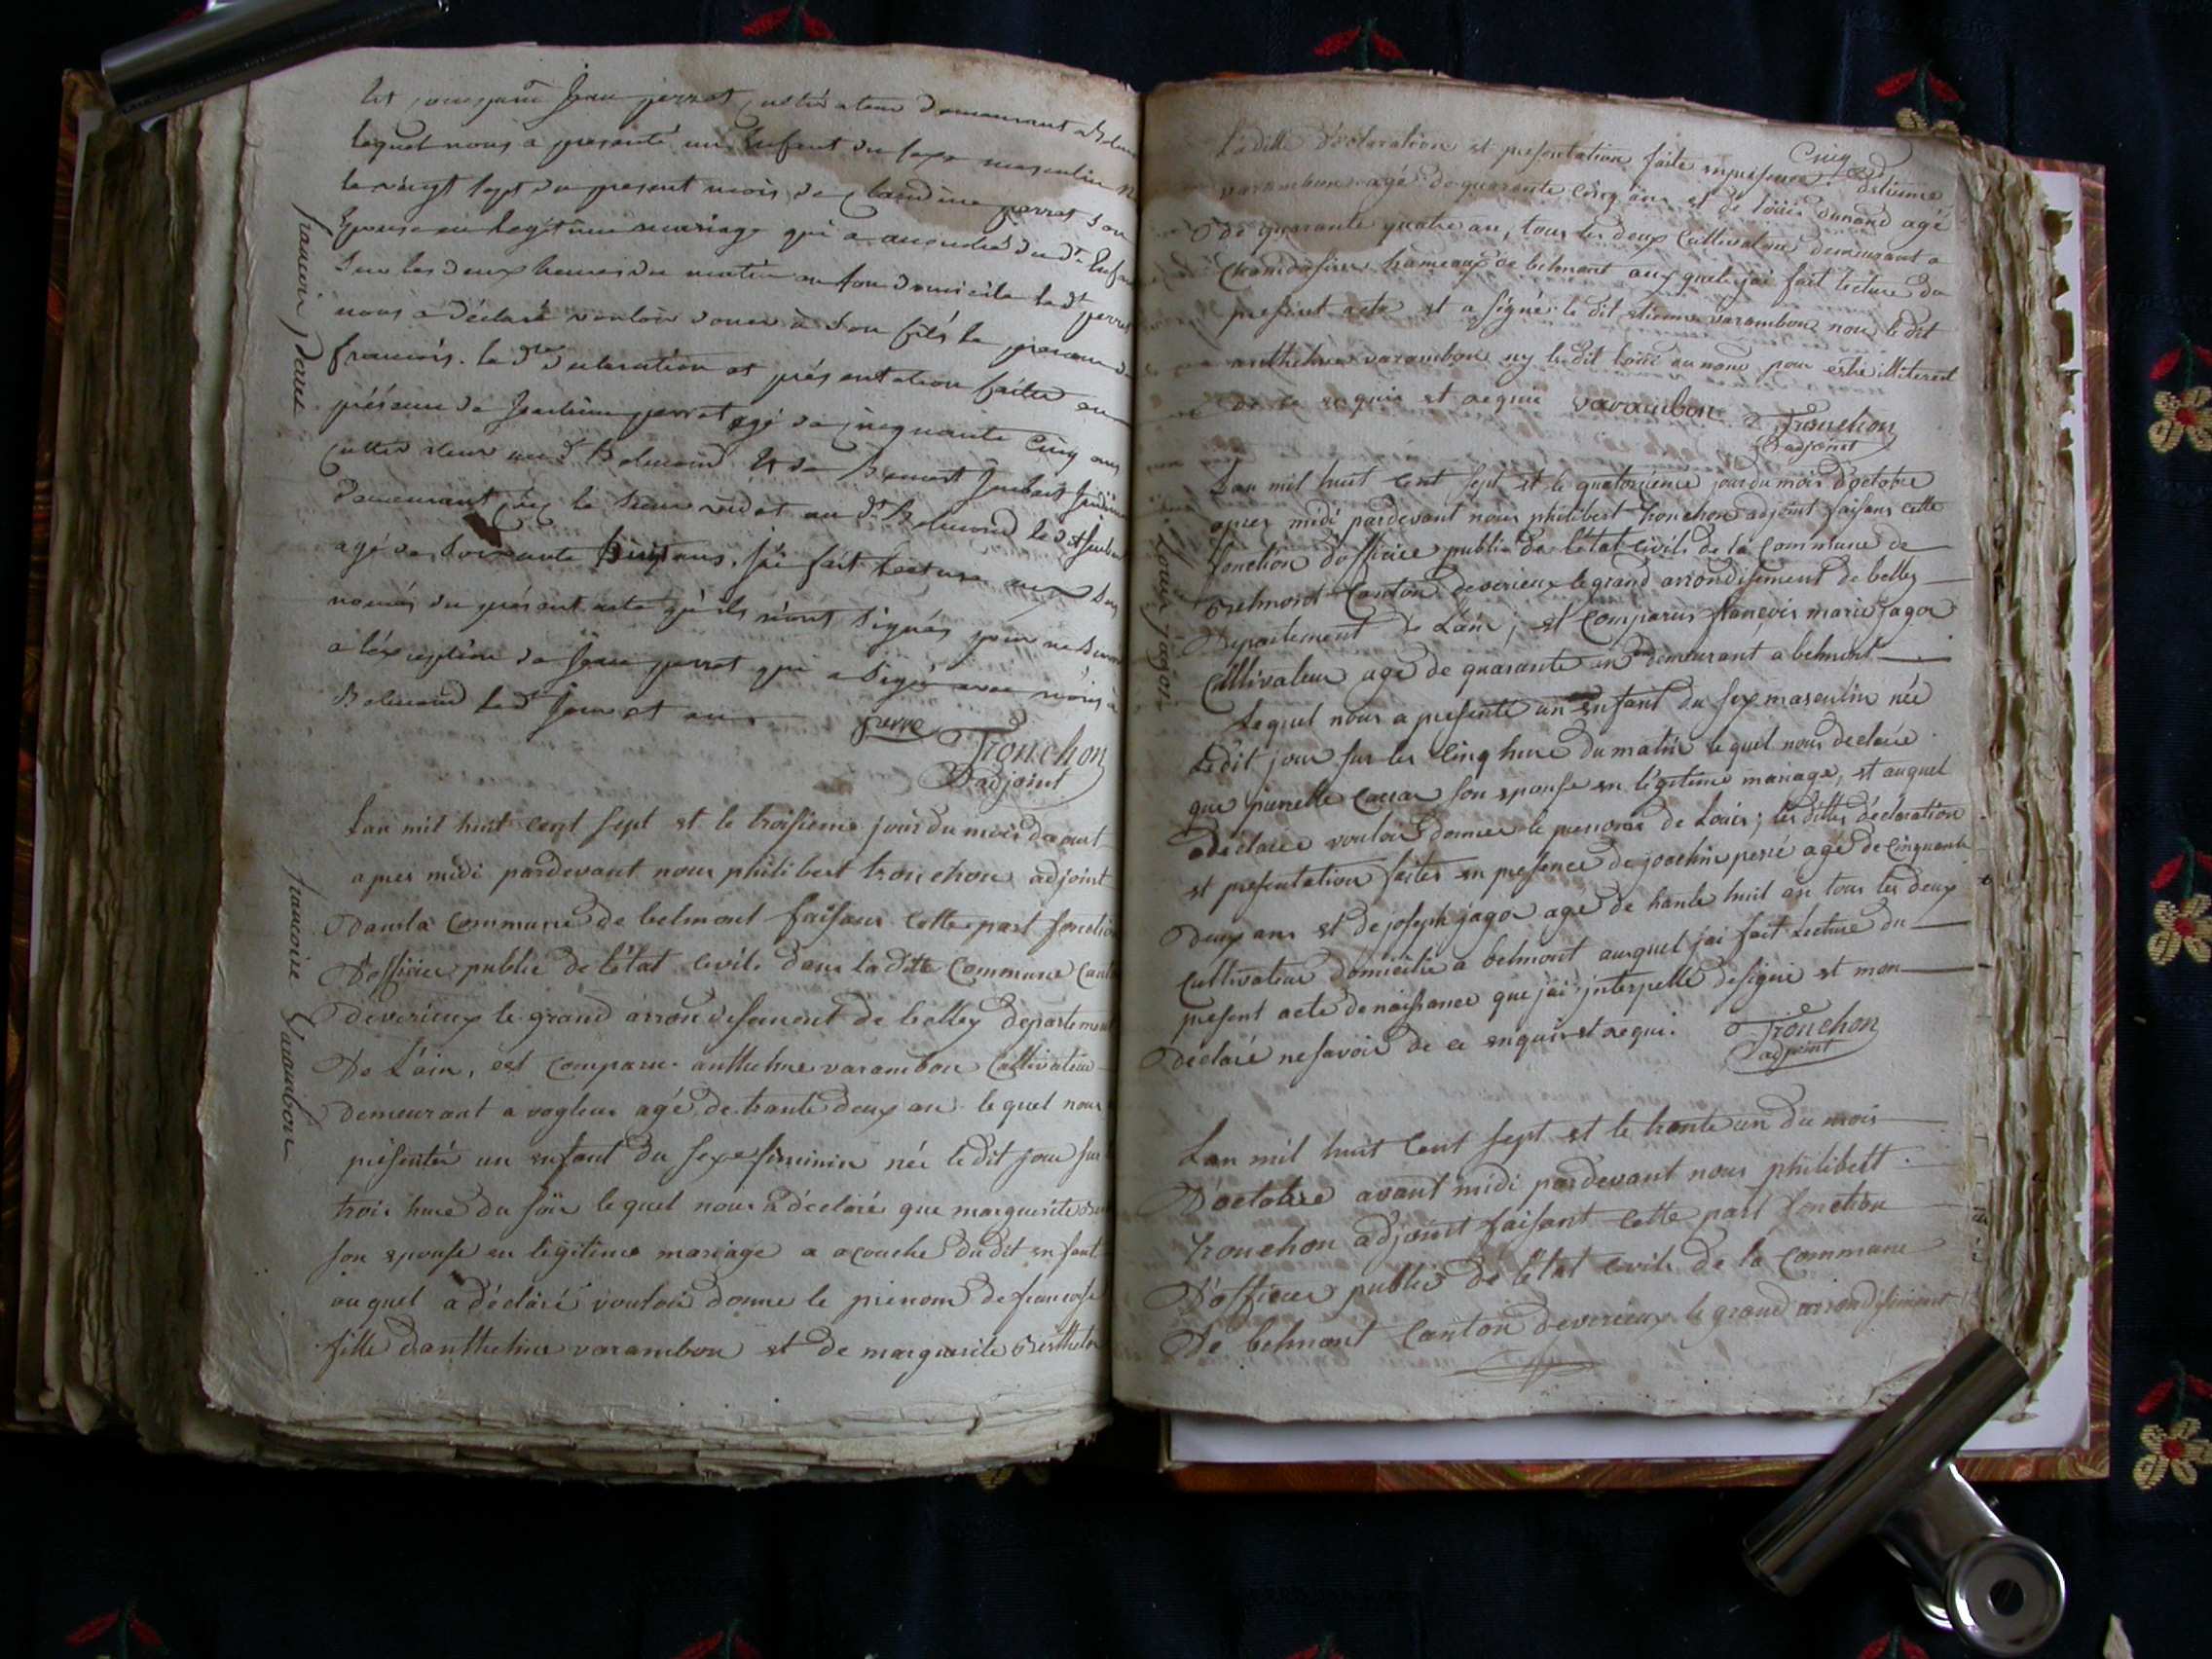 Est comparu Jean perret cultivateur demeurant a Belmo
lequel nous a presenté un Enfant du sexe masculin
le vingt sept du present mois de Claudine perret son
Epouse en legitime mariage qui a accouchés du dt Enfan
sur les deux heures du matin en son domicile le dt perret
nous a déclaré vouloir doner à son fils le prenom de
francois. la dte declaration et présentation faite en
présence de Joachim perret agé de cinquante cinq ans
cultivateur au dt Belmond Et de Benoit
demeurant chez le Sieur au dt Belmond le dt
agé de soixante ans. j'ai fait lecture aux sus
només du présent acte qu'ils n'ont signés pour ne savoir
a l'exception de Jean perret qui a signé avec nous à
Belmond led Jour et an
perre
Tronchon
adjoint
francois Perret
Lan mil huit cent sept et le troisieme jour du mois de aout
apres midi pardevant nous philibert tronchon adjoint
Dans la commune de belmont faisant cette part fonction
D'officier public de l'état civile dans la dite Commune Cant
de verieux le grand arrondisement de belley departement
De L'ain, est comparu anthelme varambon Cultivateur
demeurant a vogleus agé de trante deux an lequel nous
présentée un enfant du sexe feminin née ledit jour sur
trois hure du soir lequel nous a déclaré que marguerite
son epouse en légitime mariage a acouche du dit enfant
auquel a déclaré vouloir donne le prénom de francoise
fille d'anthelme varambon et de marguerite Bertheto
francoise Varambon
Cinq
Ladille déclaration et presentation faite enpresence d'etienne
varambon agé de quarante cinq ans et de louis eunand agé
de quarante quatre an, tous les deux Cultivateur demeurant a
hameaux de belmont aux quels jai fait lecture du
present acte et a signé le dit etienne varambon non le dit
anthelme varambon ny ledit louis eunand pour estre illiterest
de ce enquis et requis varambon
Tronchon
adjoint
Lan mil huit Cent sept et le quatorzieme jour du mois d'octobre
apres midi pardevant nous philibert tronchon adjoint faisant cette
fonction d'officier public de l'état civile de la commune de
Belmont Canton de verieux le grand arrondisement de belley
Departement de Lain; est Comparus francois marie jagor
Cultivateur age de quarante un demeurant a belmont
Lequel nous a presenté un enfant du sex masculin née
ledit jour sur les Cinq hure du matin lequel nous declare
que pierrette son epouse en légitime mariage, et auquel
a déclaré vouloir donner le prenom de Louis; les dittes déclaration
et presentation faites en presence de joachin peré agé de Cinquante
deux ans et de joseph jagor age de trante huit an tous les deux
Cultivateur domicilie a belmont auxquel jai fait lecture du
present acte de naissance que jai interpelle de signé et mon
déclaré ne savoir de ce enquis et requi.
Tronchon
adjoint
Louis jagor
Lan mil huit Cent sept et le trante un du mois
D'octobre avant midi pardevant nous philibert
tronchon adjoint faisant cette part fonction
D'officier public de l'état civile de la commune
De belmont Canton de verieux le grand arrondisement